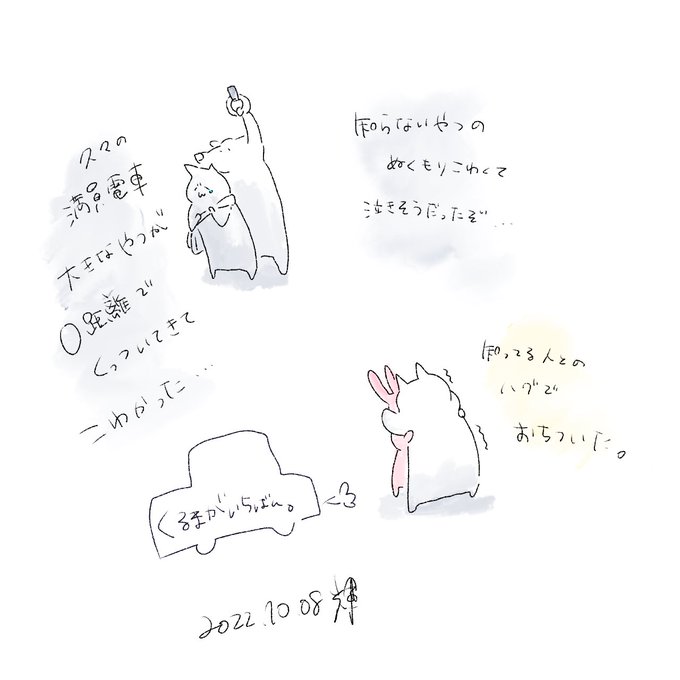 久々の
満員電車
大きなやつが
0距離で
くっついてきて
こわかった...
知らないやつの
ぬくもりこわくて
泣きそうだったぞ...
知ってる人との
ハグで
おちついた。
くるまがいちばん。
2022.10.08 輝